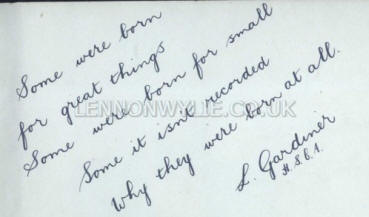 Some were born
for great things
Some were born for small
LENNONWYLIE.CO.UK
Some it isn't recorded
Why they were born at all.
L. Gardiner
H.S.6.1.